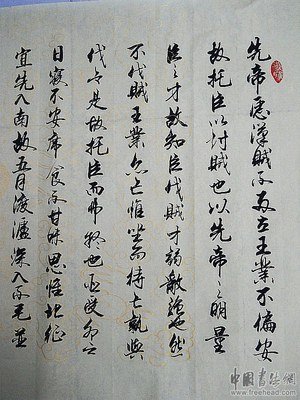 先帝慮漢賊不兩立王業不偏安
故托臣以討賊也以先帝之明量
臣之才故知臣伐賊才弱敵強也然
不伐賊王業亦亡惟坐而待亡孰與
伐之是故托臣而弗疑也臣受命之
日寢不安席食不甘味思惟北征
宜先入南故五月渡瀘深入不毛並
中国书法网
www.freehead.com